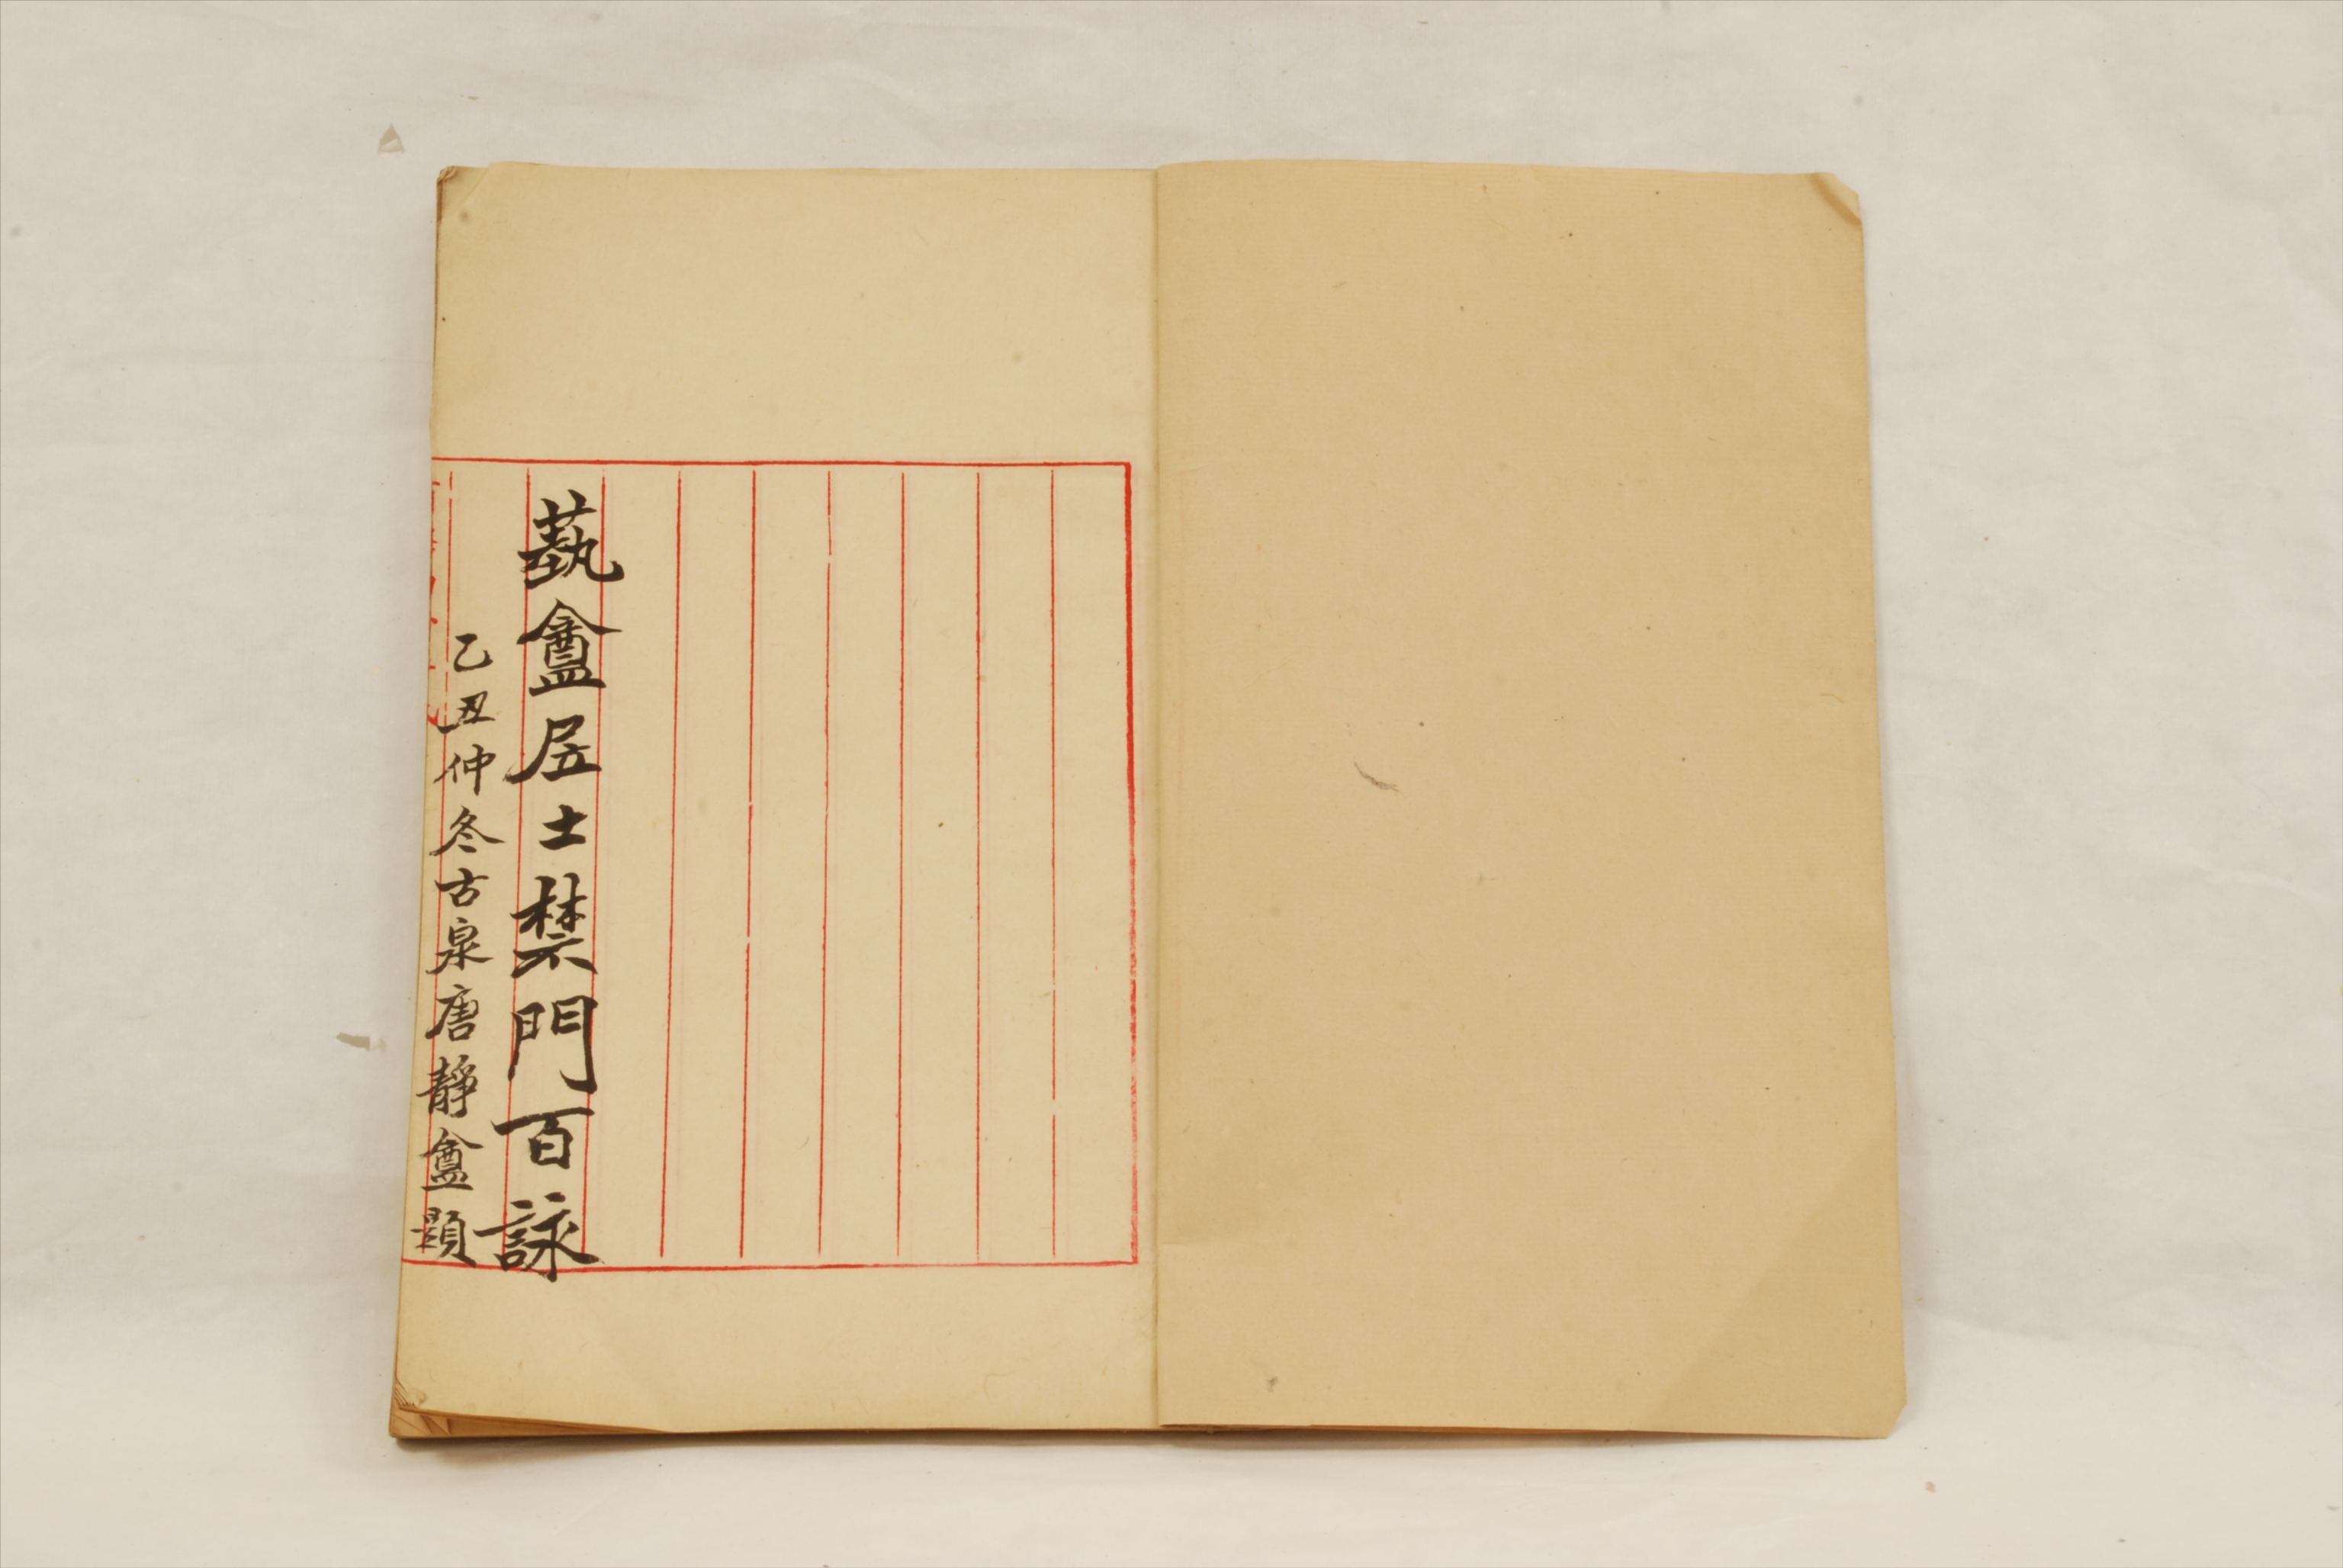 蓺盦居士禁門百詠
乙丑仲冬古泉唐靜盦題